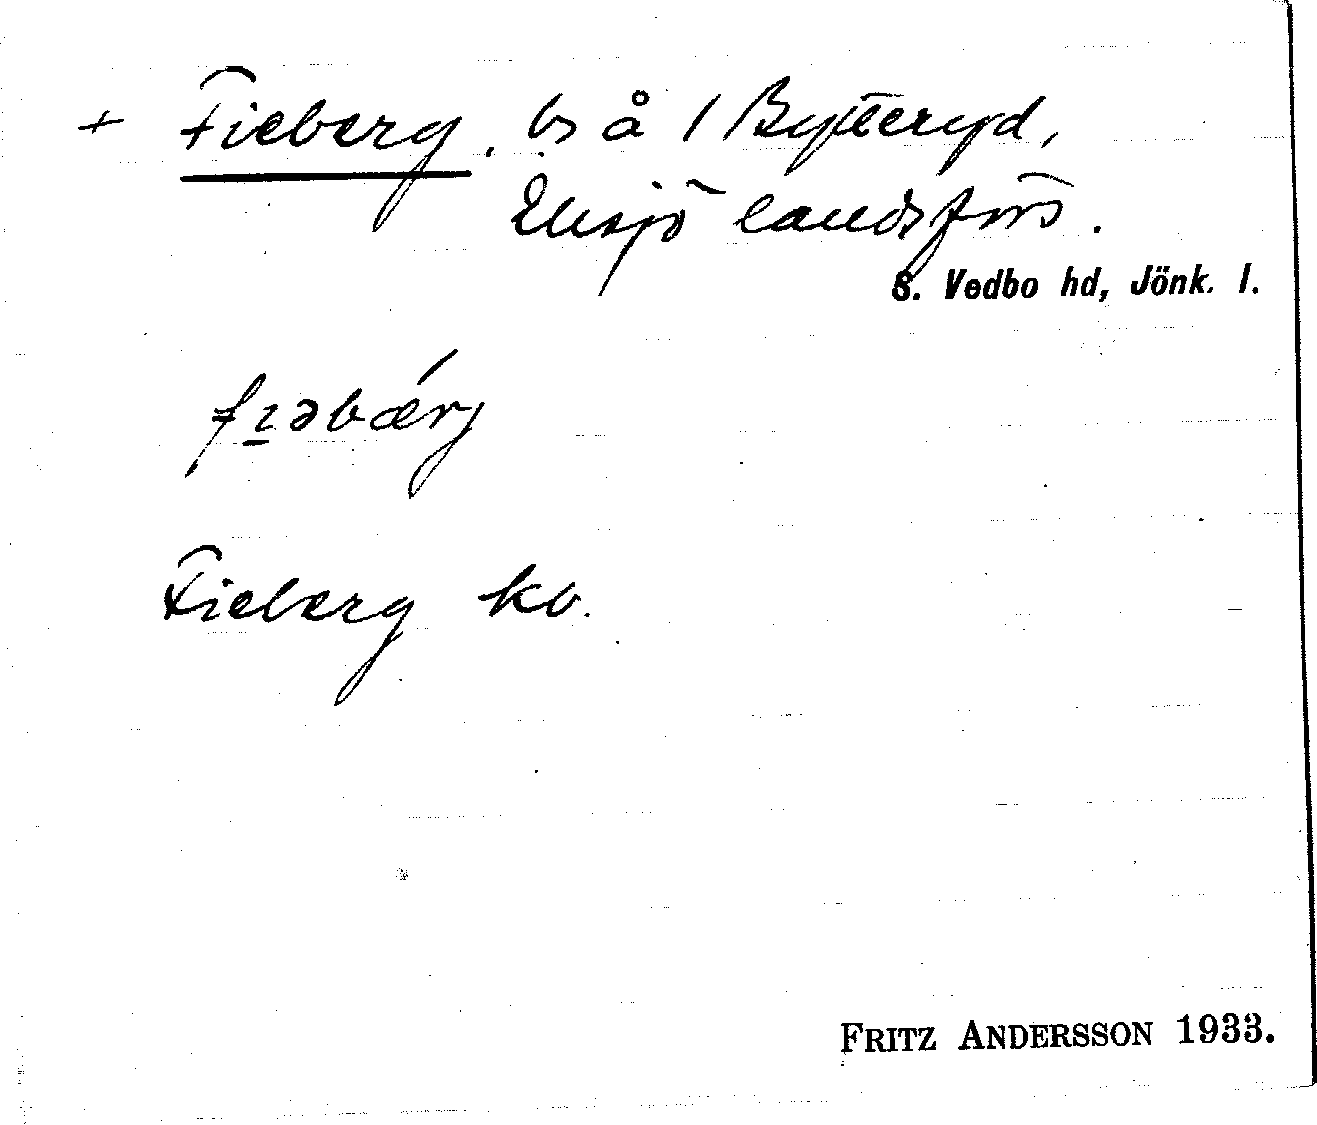 + Fieberg, bs å 1 Bytteryd,
Eksjö landsförs.
S. Vedbo hd, Jönk. l.
fɪəbærj
Fieberg kb.
FRITZ ANDERSSON 1933.